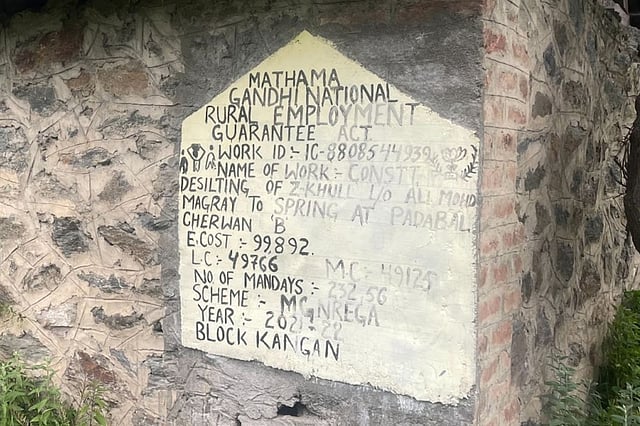 MATHAMA
GANDHI NATIONAL
RURAL EMPLOYMENT
GUARANTEE ACT
WORK ID:- IC-8808544939
NAME OF WORK:- CONSTT
DESILTING OF Z-KHULL L/O ALI MOHD
MAGRAY TO SPRING AT PADABAL
CHERWAN B
E.COST :- 99,892.
L.C:- 49766 M.C:- 49125
NO. OF MANDAYS:- 232.56
SCHEME :- MGNREGA
YEAR :- 2021-22
BLOCK KANGAN